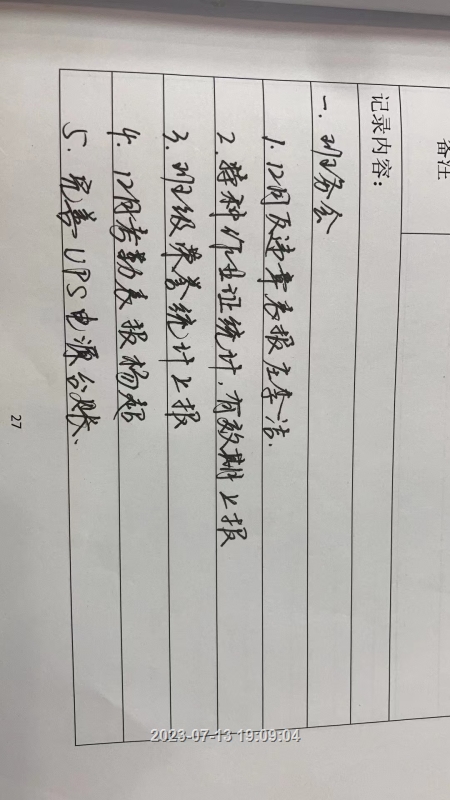 备注
记录内容:
一. 班务会
1. 12月反违章表报左李洁.
2. 特种作业证统计,有效期上报
3. 班级荣誉统计上报
4. 12月考勤表报杨超
5. 完善UPS电源台账.
27
2023-07-13 19:09:04